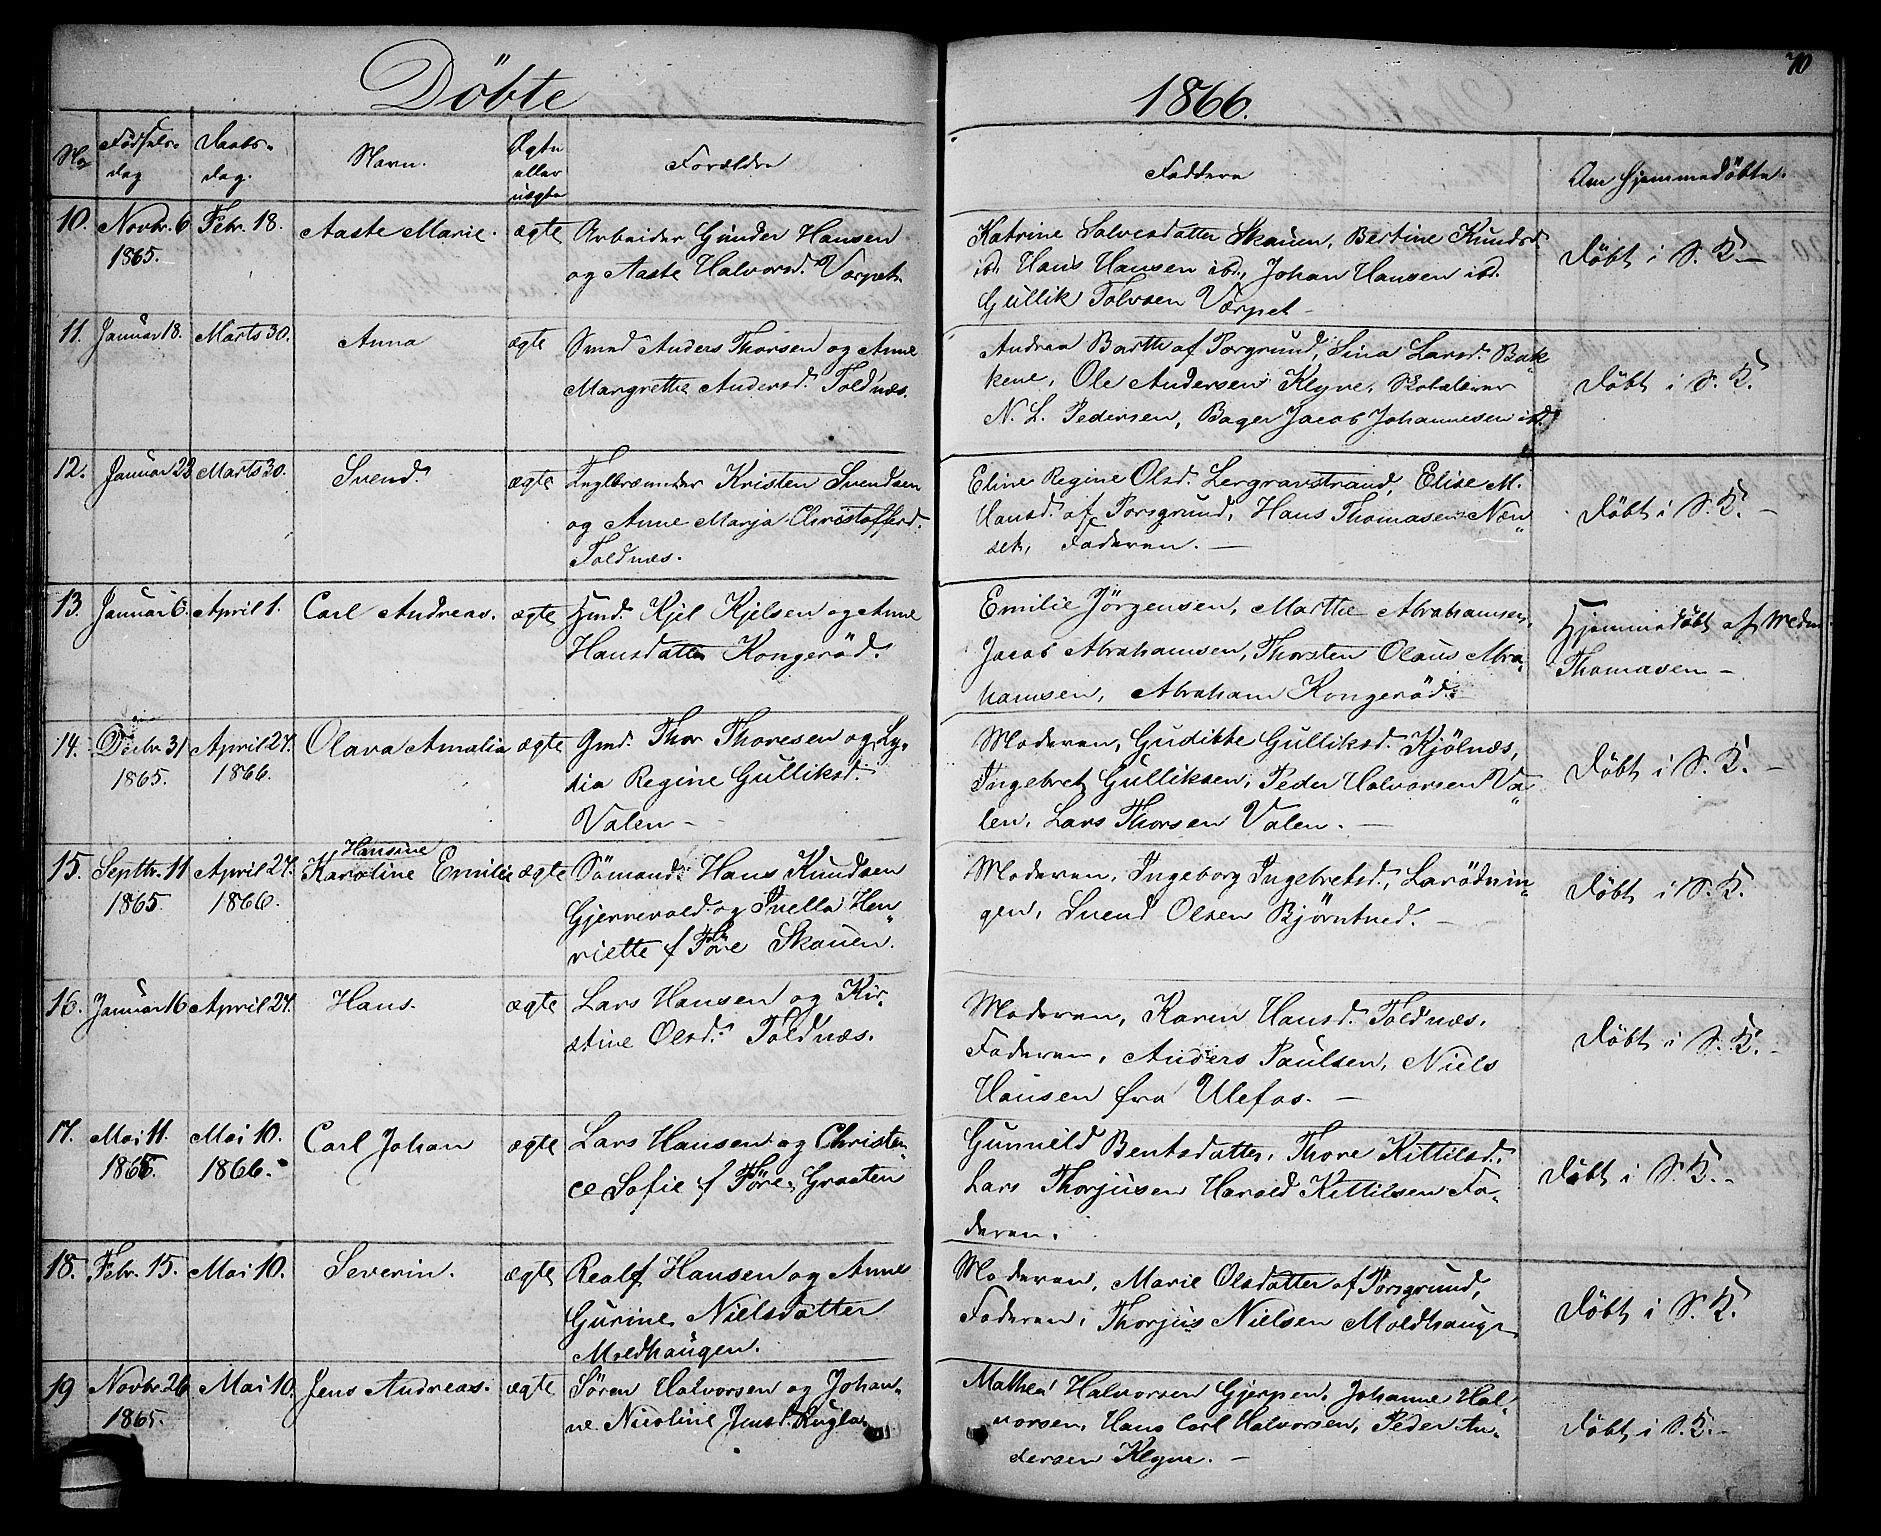 70
Döbte 1866.
No Fødsels- dag Daabs- dag. Navn. Ægte eller uægte Forældre Faddere Om hjemmedöbte.
10. Novbr. 6 1865. Febr. 18. Aaste Marie. ægte Arbeider Gunder Hansen
og Aaste Halvorsd. Værpet.
Katrine Solvesdatter Skauen, Bertine Knudsd.
ibd. Hans Hansen ibd., Johan Hansen ibd.
Gullik Tolvsen Værpet - Döbt i S. K. -
11. Januar 18. Marts 30. Anna ægte Smed Anders Thorsen og Anne
Margrethe Andersd. Toldnæs.
Andrea Barth af Porgrund, Sina Larsd. Bak-
kene, Ole Andersen Klyve, Skolelærer
N. L. Pedersen, Bager Jacob Johannesen ibd. Döbt i S. K.
12. Januar 23 Marts 30. Svend. ægte Teglbrænder Kristen Svendsen
og Anne Marja Christoffersd.
Toldnæs.
Eline Regine Olsd. Lergravstrand, Elise M.
Hansd. af Porsgrund, Hans Thomasen Næn-
set, Faderen. - Döbt i S. K. -
13. Januar 6. April 1. Carl Andreas. ægte Hmd. Kjel Kjelsen og Anne
Hansdatter Kongeröd.
Emilie Jörgensen, Marthe Abrahamsen,
Jacob Abrahamsen, Thorsten Olaus Abra-
hamsen, Abraham Kongeröd. Hjemmedöbt af Madm
Thomasen -
14. Decbr. 31 1865. April 27. 1866. Olava Amalia ægte Gmd. Thor Thoresen og Ly-
dia Regine Gulliksd.
Valen -
Moderen, Gudithe Gulliksd. Kjölnæs,
Ingebret Gulliksen, Peder Halvorsen Va-
len, Lars Thorsen Valen. - Döbt i S. K. -
15. Septbr. 11 1865. April 27. 1866. Hansine
Karoline Emilie ægte Sömand Hans Knudsen
Gjerrevald og Inella Hen-
riette f Töre Skauen.
Moderen, Ingeborg Ingebretsd., Larödnin-
gen, Svend Olsen Björntved. - Döbt i S. K.
16. Januar 16 April 27. Hans. ægte Lars Hansen og Kir-
stine Olsd. Toldnæs.
Moderen, Karen Hansd. Toldnæs.
Faderen, Anders Paulsen, Niels
Hansen fra Ulefos. - Döbt i S. K. -
17. Mai 11. 1865. Mai 10. 1866. Carl Johan ægte Lars Hansen og Christen-
ce Sofie f Töre, Graaten
Gunnild Bentsdatter, Thore Kittilsd.
Lars Thorjusen Harald Kittilsen Fa-
deren. Döbt i S. K. -
18. Febr. 15. Mai 10. Severin. ægte Realf Hansen og Anne
Gurine Nielsdatter
Moldhaugen.
Moderen, Marie Olsdatter af Porsgrund,
Faderen, Thorjus Nielsen Moldhaugen Döbt i S. K.
19 Novbr. 26 1865. Mai 10. Jens Andreas. ægte Sören Halvorsen og Johan-
ne Nicoline Jensd.
Mathea Halvorsen Gjerpen, Johanne Hal-
vorsen, Hans Carl Halvorsen, Peder An-
dersen Klyve. - Döbt i S. K. -